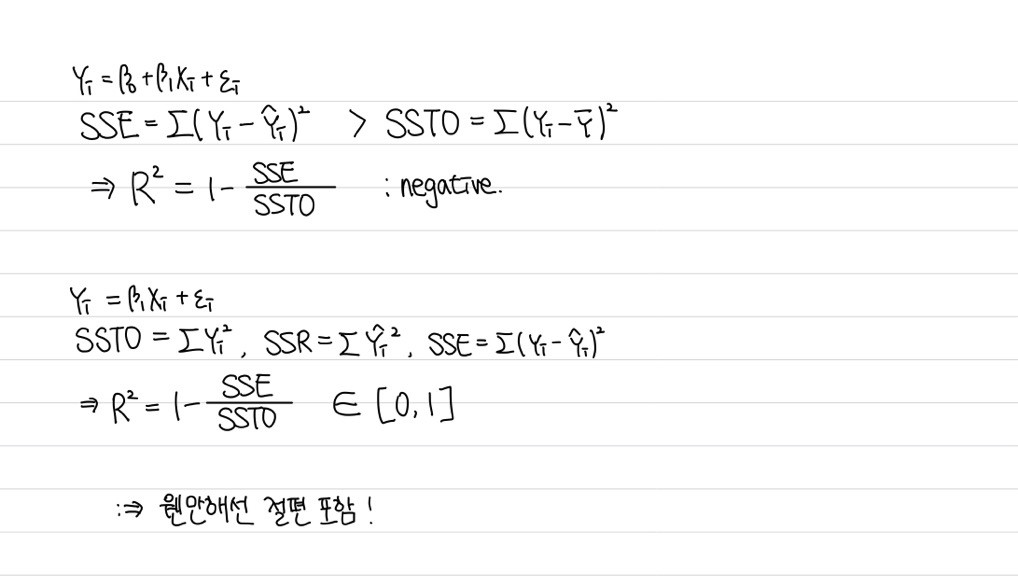 Yi = β0 + β1Xi + εi
SSE = Σ(Yi - Ŷi)² > SSTO = Σ(Yi - Ȳ)²
⇒ R² = 1 - SSE/SSTO : negative.
Yi = β1Xi + εi
SSTO = ΣYi², SSR = ΣŶi², SSE = Σ(Yi - Ŷi)²
⇒ R² = 1 - SSE/SSTO ∈ [0, 1]
:⇒ 웬만해선 절편 포함!